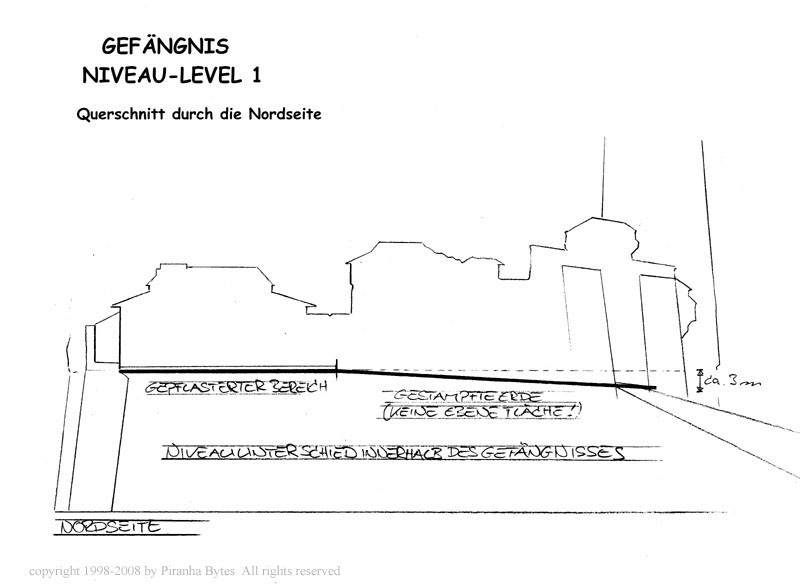 GEFÄNGNIS
NIVEAU-LEVEL 1
Querschnitt durch die Nordseite
GEPFLASTERTER BEREICH
GESTAMPFTE ERDE
(KEINE EBENE FLÄCHE!)
ca. 3m
NIVEAUUNTERSCHIED INNERHALB DES GEFÄNGNISSES
NORDSEITE
copyright 1998-2008 by Piranha Bytes All rights reserved